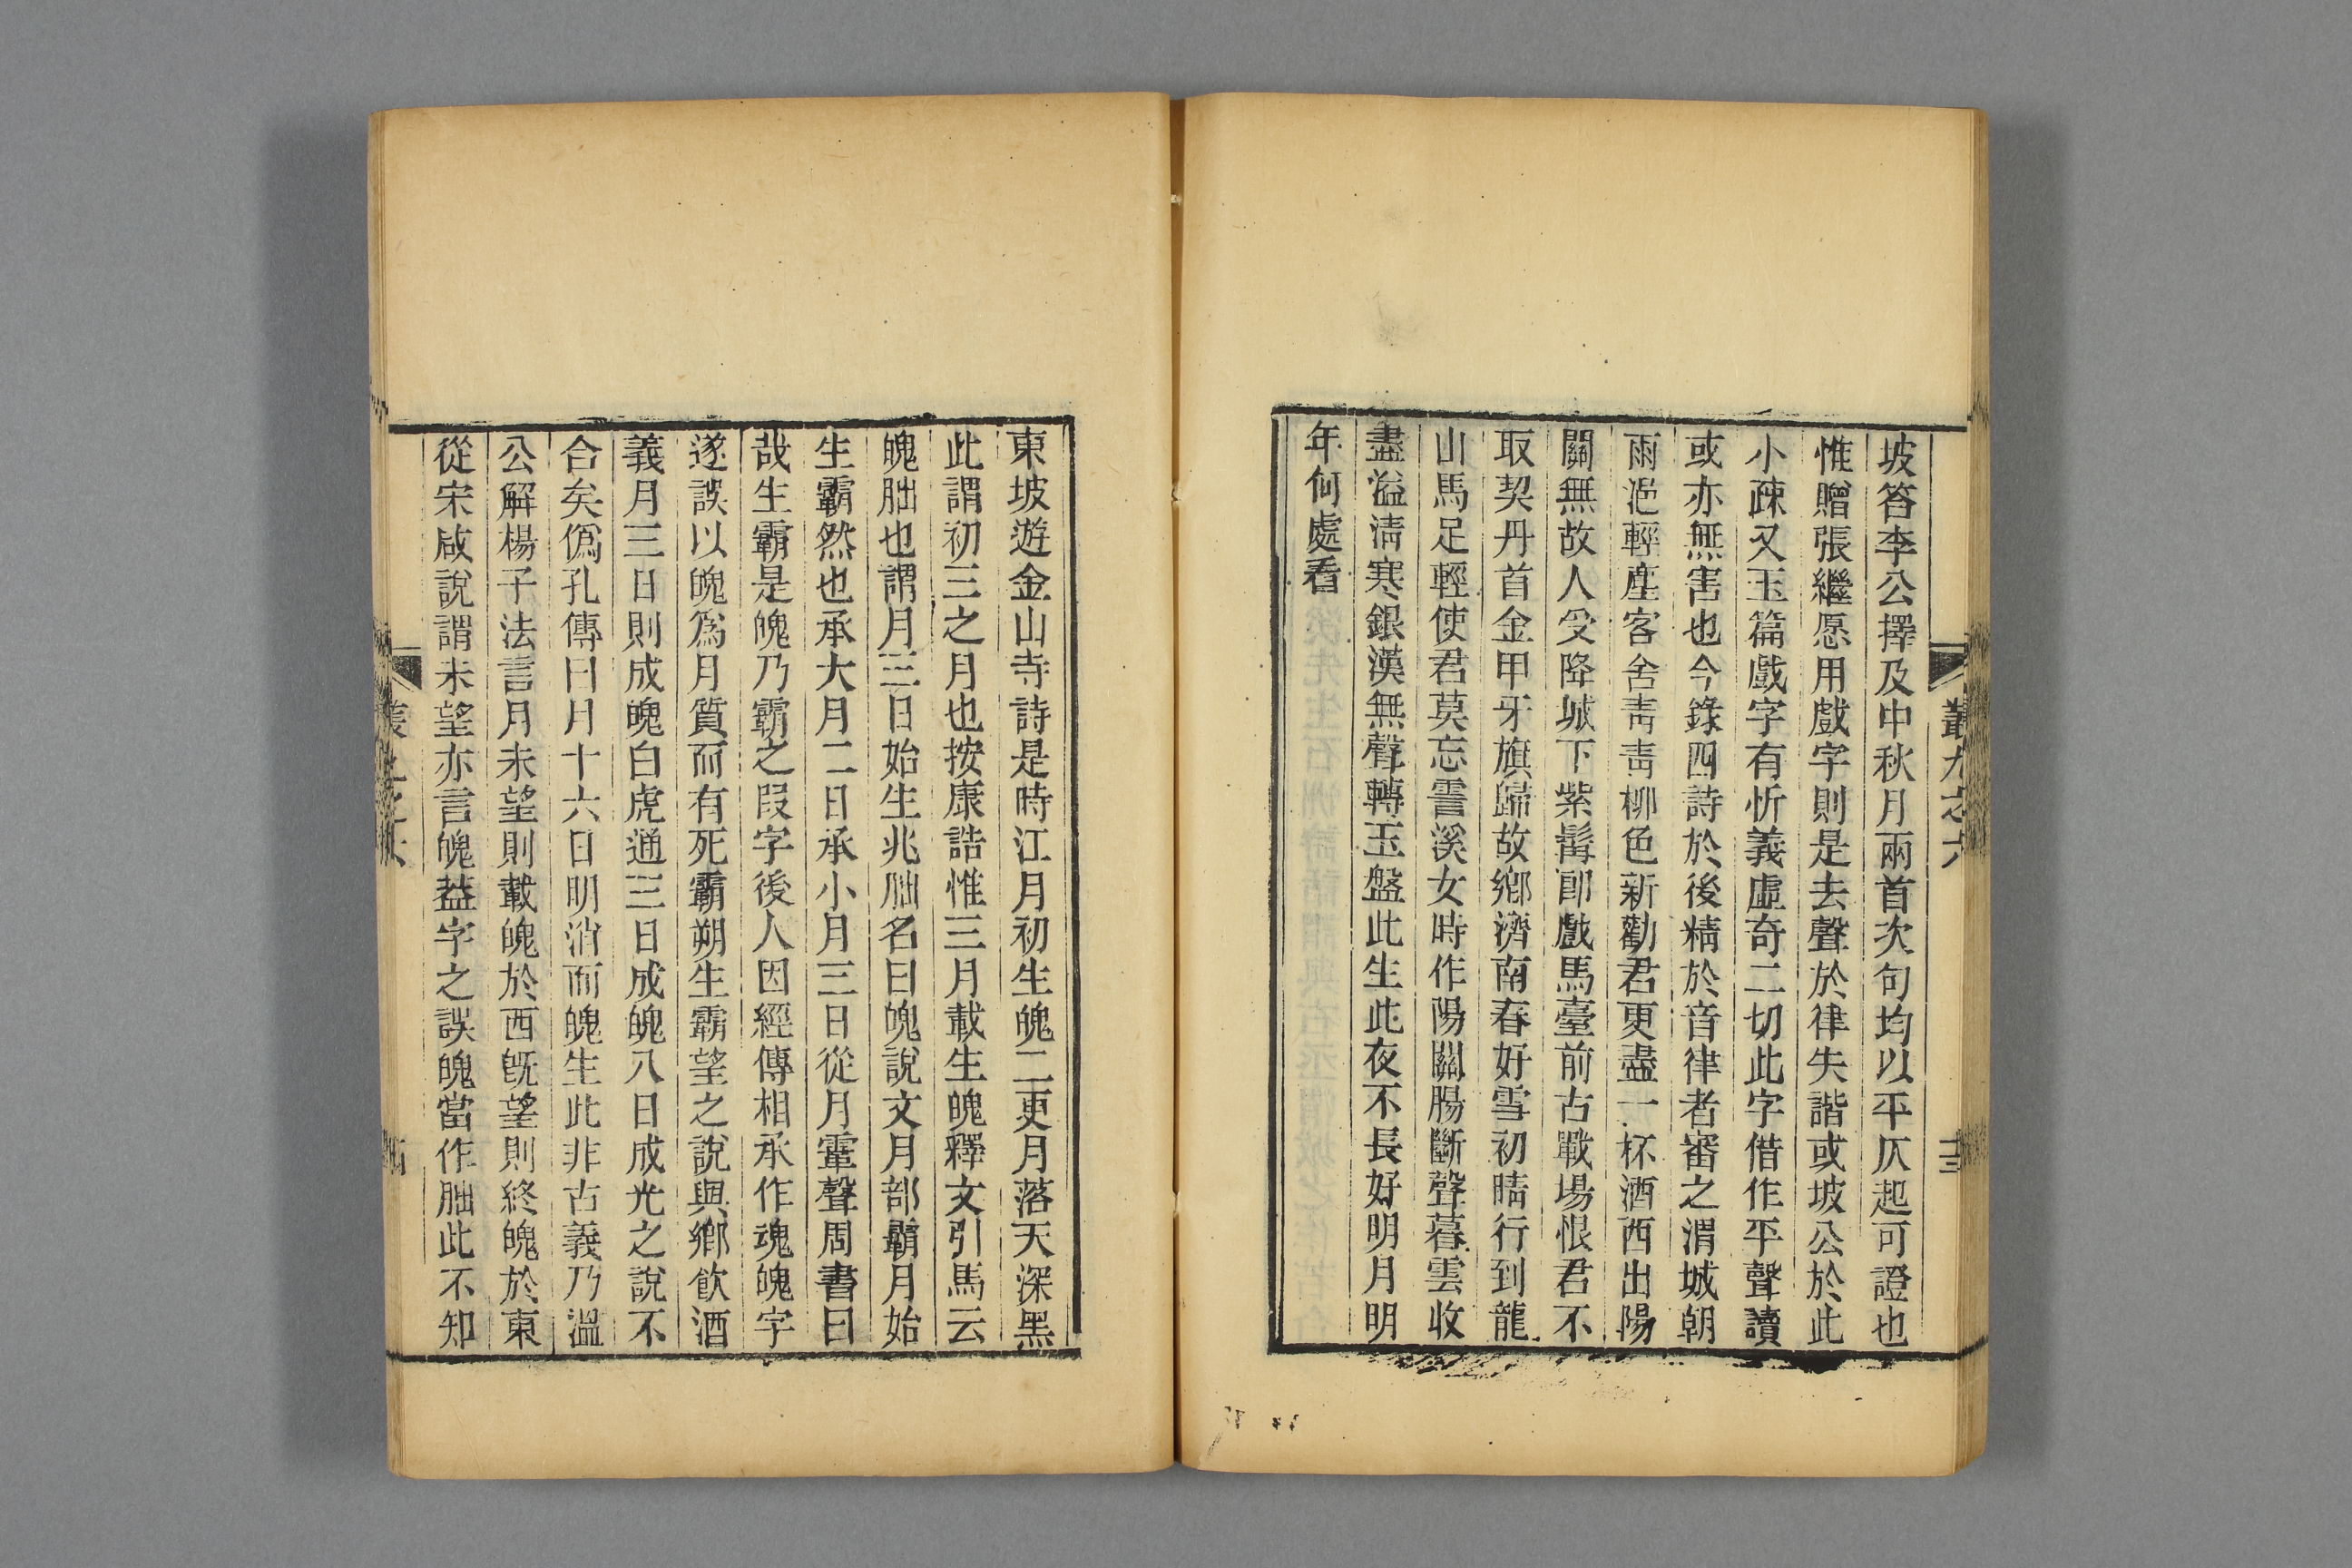 叢九之六
十三
坡答李公擇及中秋月兩首次句均以平仄起可證也
惟贈張繼愿用戲字則是去聲於律失諧或坡公於此
小疎又玉篇戲字有忻義虛奇二切此字借作平聲讀
或亦無害也今錄四詩於後精於音律者審之渭城朝
雨浥輕塵客舍靑靑柳色新勸君更盡一杯酒西出陽
關無故人受降城下紫髯郎戲馬臺前古戰場恨君不
取契丹首金甲牙旗歸故鄉濟南春好雪初晴行到龍
山馬足輕使君莫忘霅溪女時作陽關腸斷聲暮雲收
盡溢淸寒銀漢無聲轉玉盤此生此夜不長好明月明
年何處看
東坡遊金山寺詩是時江月初生魄二更月落天深黑
此謂初三之月也按康誥惟三月哉生魄釋文引馬云
魄朏也謂月三日始生兆朏名曰魄說文月部霸月始
生霸然也承大月二日承小月三日從月䨣聲周書曰
哉生霸是魄乃霸之叚字後人因經傳相承作魂魄字
遂誤以魄爲月質而有死霸朔生霸望之說與鄉飮酒
義月三日則成魄白虎通三日成魄八日成光之說不
合矣僞孔傳曰月十六日明消而魄生此非古義乃溫
公解楊子法言月未望則載魄於西旣望則終魄於東
從宋咸說謂未望亦言魄葢字之誤魄當作朏此不知